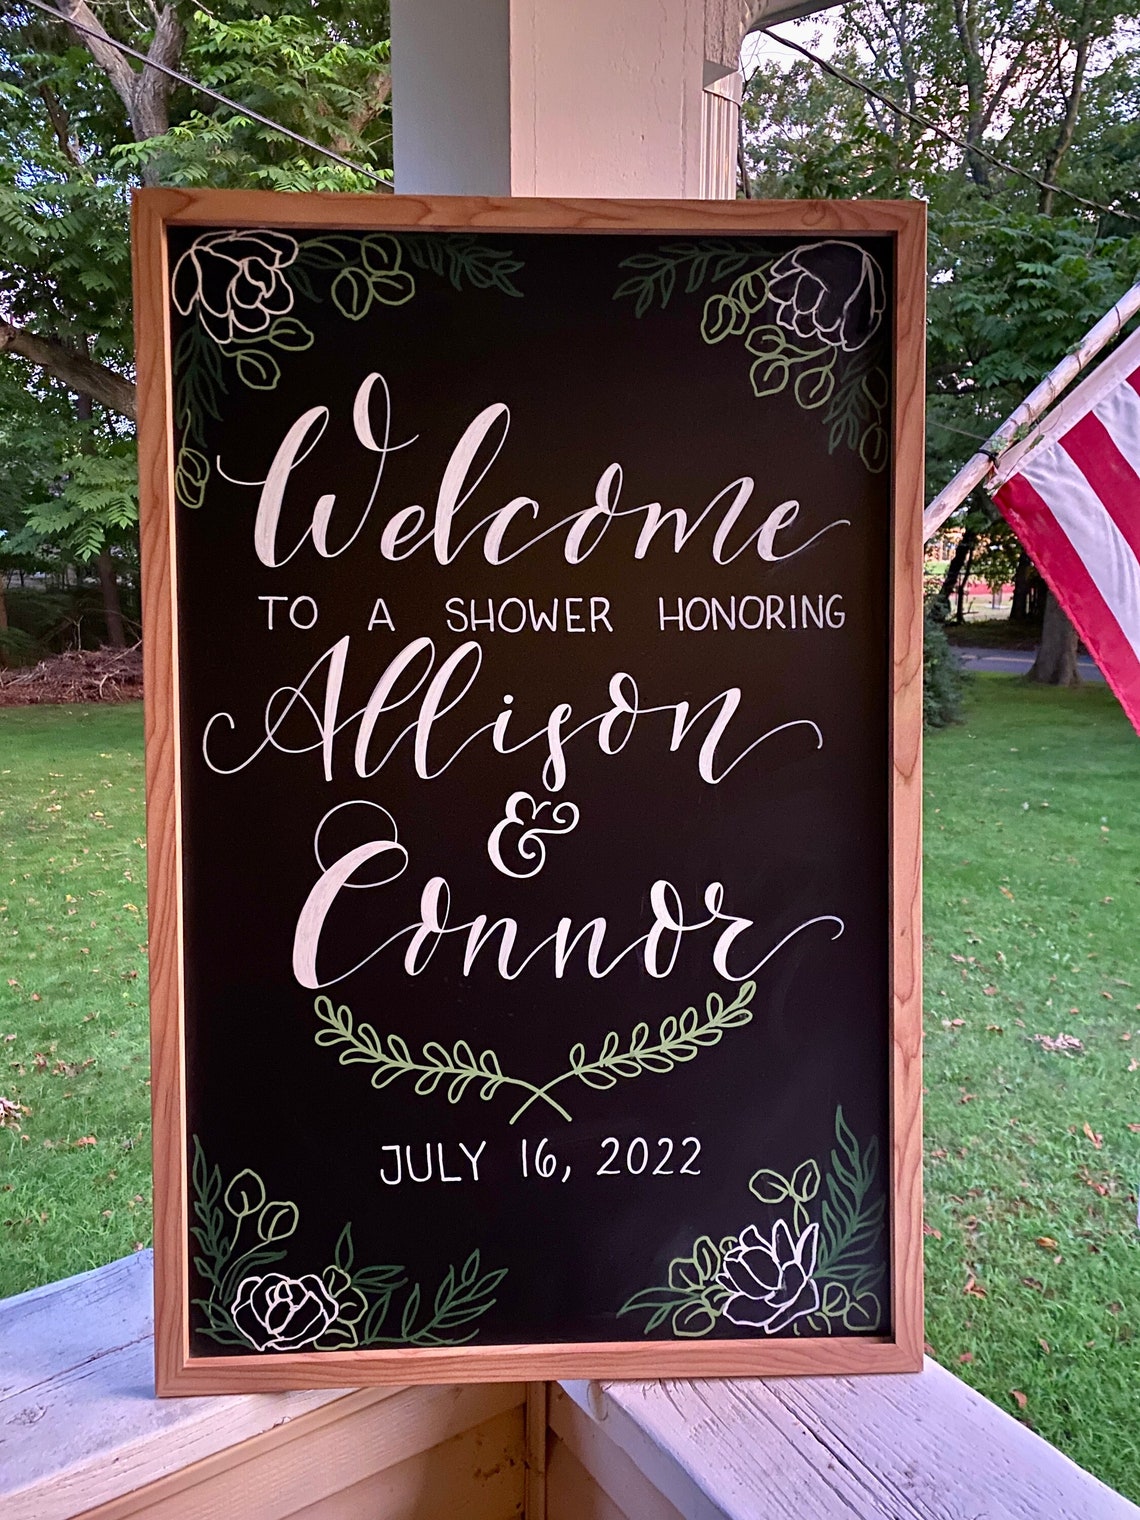 Welcome
TO A SHOWER HONORING
Allison
&
Connor
JULY 16, 2022